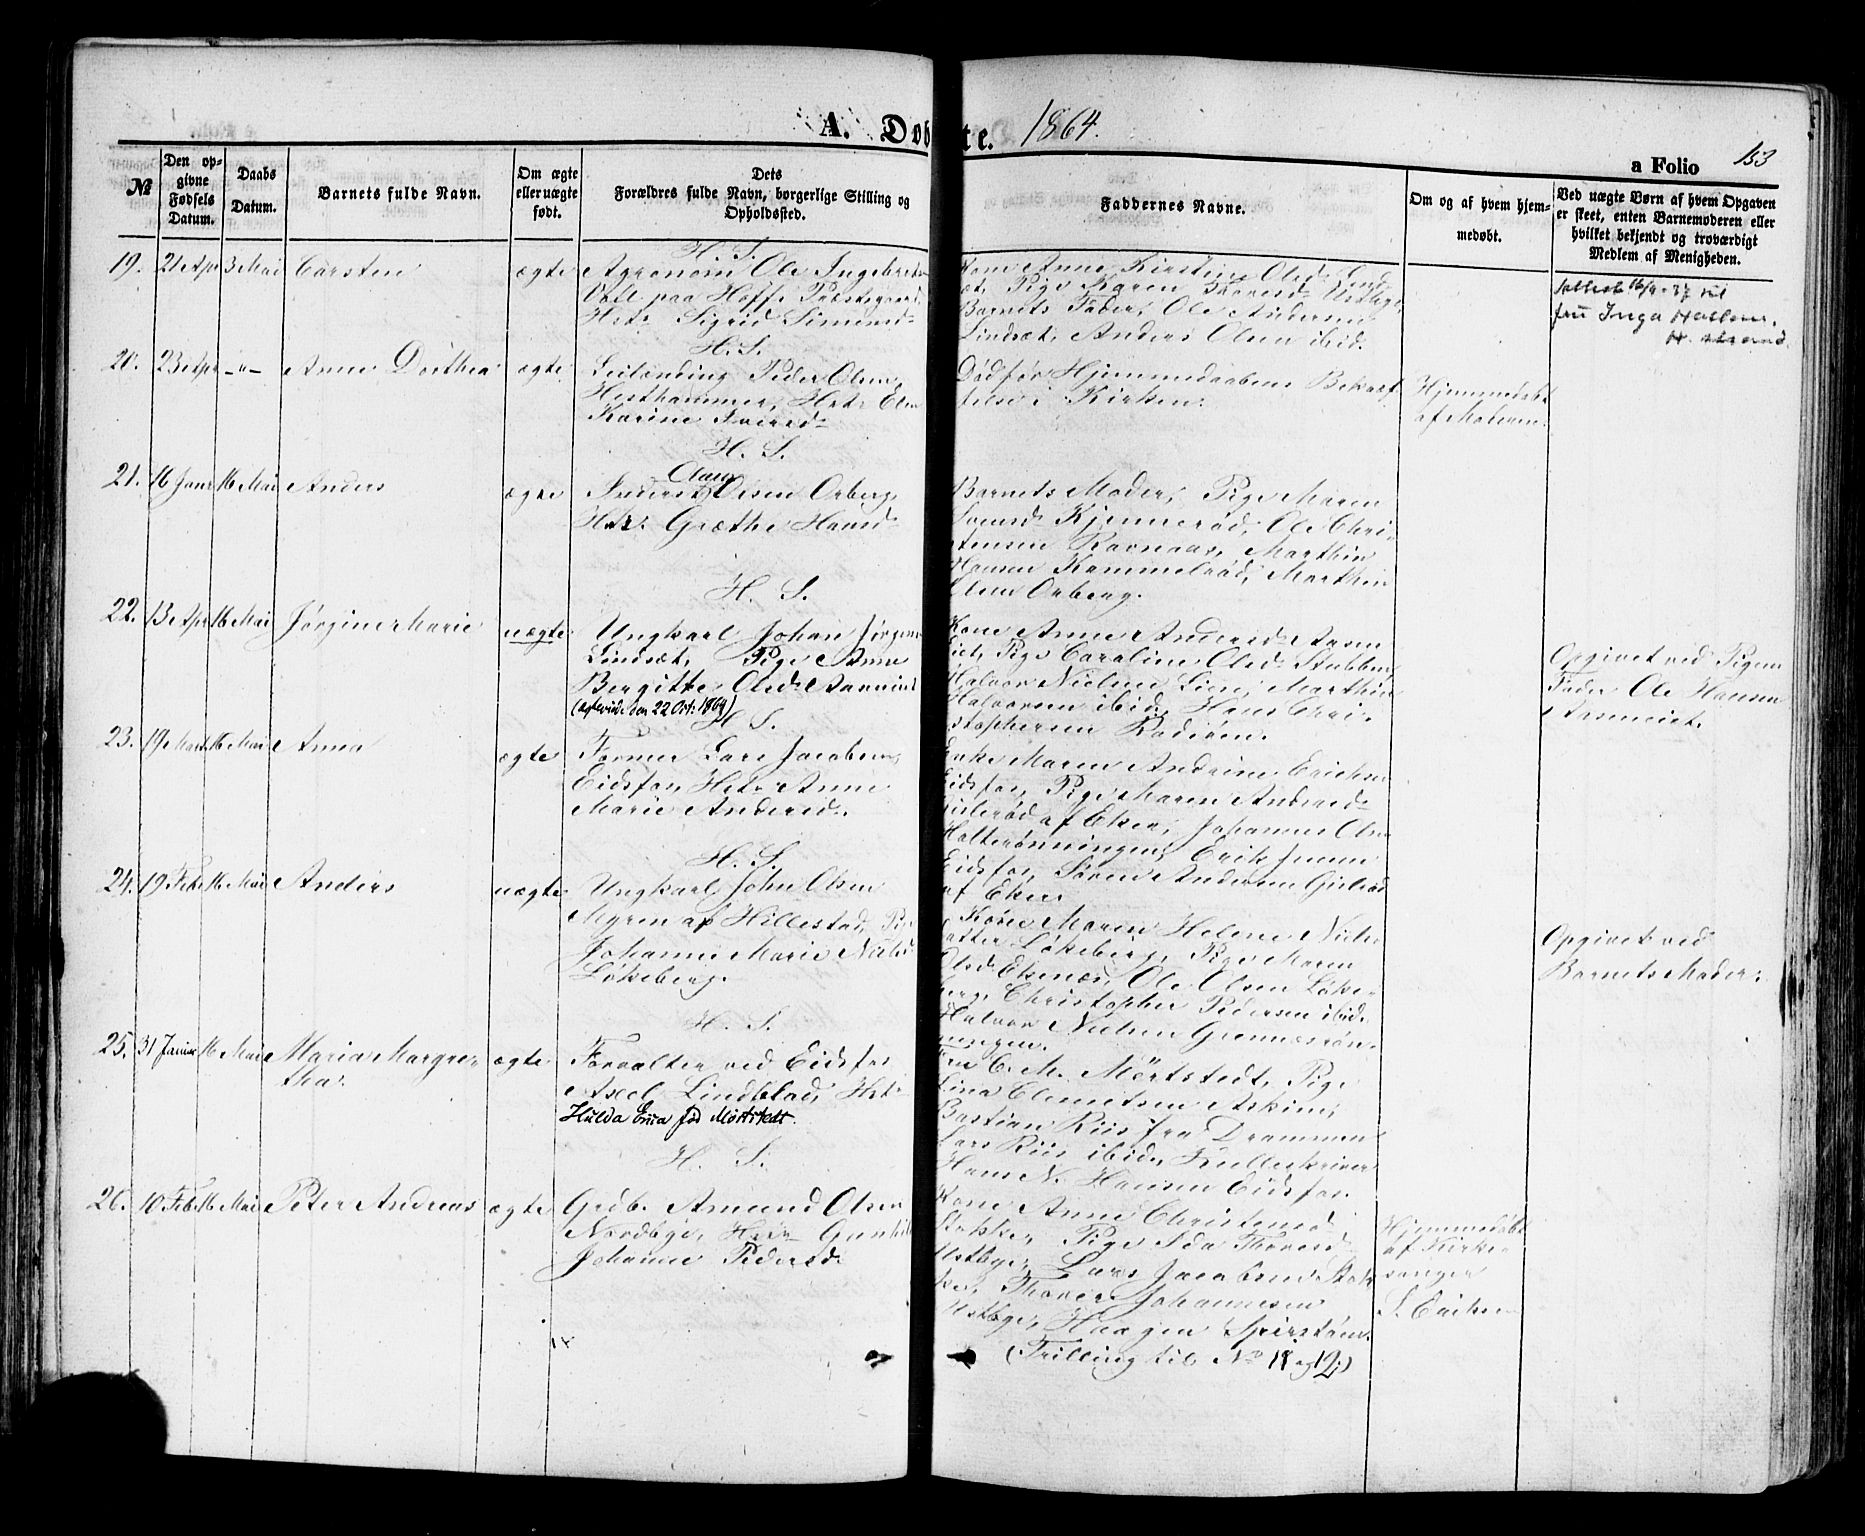 A. Døb
te. 1864.
a Folio 153
№
Den op-
givne
Fødsels
Datum.
Daabs
Datum.
Barnets fulde Navn.
Om ægte
eller uægte
født.
Dets
Forældres fulde Navn, borgerlige Stilling og
Opholdssted.
Faddernes Navne.
Om og af hvem hjem-
medøbt.
Ved uægte Børn af hvem Opgaven
er skeet, enten Barnemoderen eller
hvilket bekjendt og troværdigt
Medlem af Menigheden.
H. S.
19. 21 Apr 3 Mai Carsten ægte Agronom Ole Ingebretsen
paa Hoffs Præstegaard
Hstr Sigrid Simensd
Kone Anne Kirstine Olsd. Lind
sæt, Pige Karen
Barnets Fader, Ole Andersen
Lindsæt, Anders Olsen ibid.
til
fru Inga
H. S.
20. 23 Apr -"- Anne Dorthea ægte Leilænding Peder Olsen
Hesthammer, Hstr Elen
Karine Iversd
Død før Hjemmedaabens Bekræf
telse i Kirken.
Hjemmedøbt
af Moderen.
H. S.
21. 16 Janr 16 Mai Anders ægte Olsen Orberg,
Hstr. Græthe Hansd
Barnets Moder, Pige Maren
Kjennerød, Ole Chri-
stensen Ravnaas, Marthin
Hansen Kammelrød, Marthin
Olsen Orberg.
H. S.
22. 13 Apr 16 Mai Jørgine Marie uægte Ungkarl Johan Jørgens
Lindsæt, Pige Anne
Bergitte Olsd
(ægteviede den 22 Oct: 1864)
Kone Anne Andersd
Pige Caroline Olsd. Stubben,
Halvor Nielsen Lien, Marthin
Halvorsen ibid, Hans Chri-
stophersen
Opgivet ved Pigens
Fader Ole Hansen
H. S.
23. 19 Marts 16 Mai Anna ægte Former Lars Jacobsen
Eidsfos, Hstr Anne
Marie Andersd.
Enke Maren Andrine Erichsen
Eidsfos, Pige Maren Andersd
af Eker, Johannes Olsen
Holterønningen, Erik Jensen
Eidsfos, Søren Andersen
af Eker
H. S.
24. 19 Febr 16 Mai Anders uægte Ungkarl John Olsen
Myren af Hillestad, Pige
Johanne Marie Nielsd
Løkeberg.
Kone Maren Helene Niels
datter Løkeberg, Pige Maren
Olsd Ekenæs, Ole Olsen Løke-
berg, Christopher Pedersen ibid
Halvor Nielsen Grennesrøn-
ningen.
Opgivet ved
Barnets Moder.
H. S.
25. 31 Januar 16 Mai Maria Margre-
tha. ægte Forvalter ved Eidsfos
Axel Lindblad, Hstr
Hulda Erica fød Mörtstedt.
C. M. Mörtstedt, Pige
Lina Clemetsen Askim,
Bastian Riis fra Drammen
Lars Riis ibid, Kulleskriver
Hans N. Hansen Eidsfos.
H. S.
26. 10 Feb 16 Mai Peter Andreas ægte Grdb. Amund Olsen
Nordbye, Hstr Gunhild
Johanne Pedersd
Kone Anne Christensd
Stokke, Pige Ida Thoresd
Ustbye, Lars Jacobsen Stok
ke, Thorer Johannesen
Ustbye, Haagen
(Trilling til No 11 og 12)
Hjemmedøbt
af Kirke-
sanger
S. Erichsen